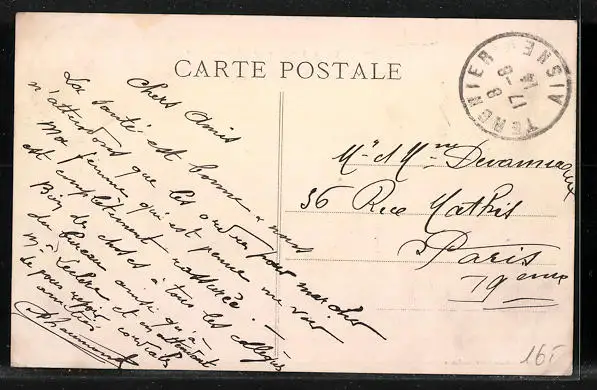 CARTE POSTALE
TERGNIER AISNE
17-8
14
8
Chers Amis
La santé est bonne & nous
n'attendons que les ordres pour marcher
Ma femme qui est venue me voir
est complètement rassurée.
Bien des choses à tous les collègues
du bureau ainsi qu'à
Mr Leclerc et en attendant
de vous revoir cordiales
amitiés
Mr & Mme
36 Rue Mathis
Paris
19ème
165